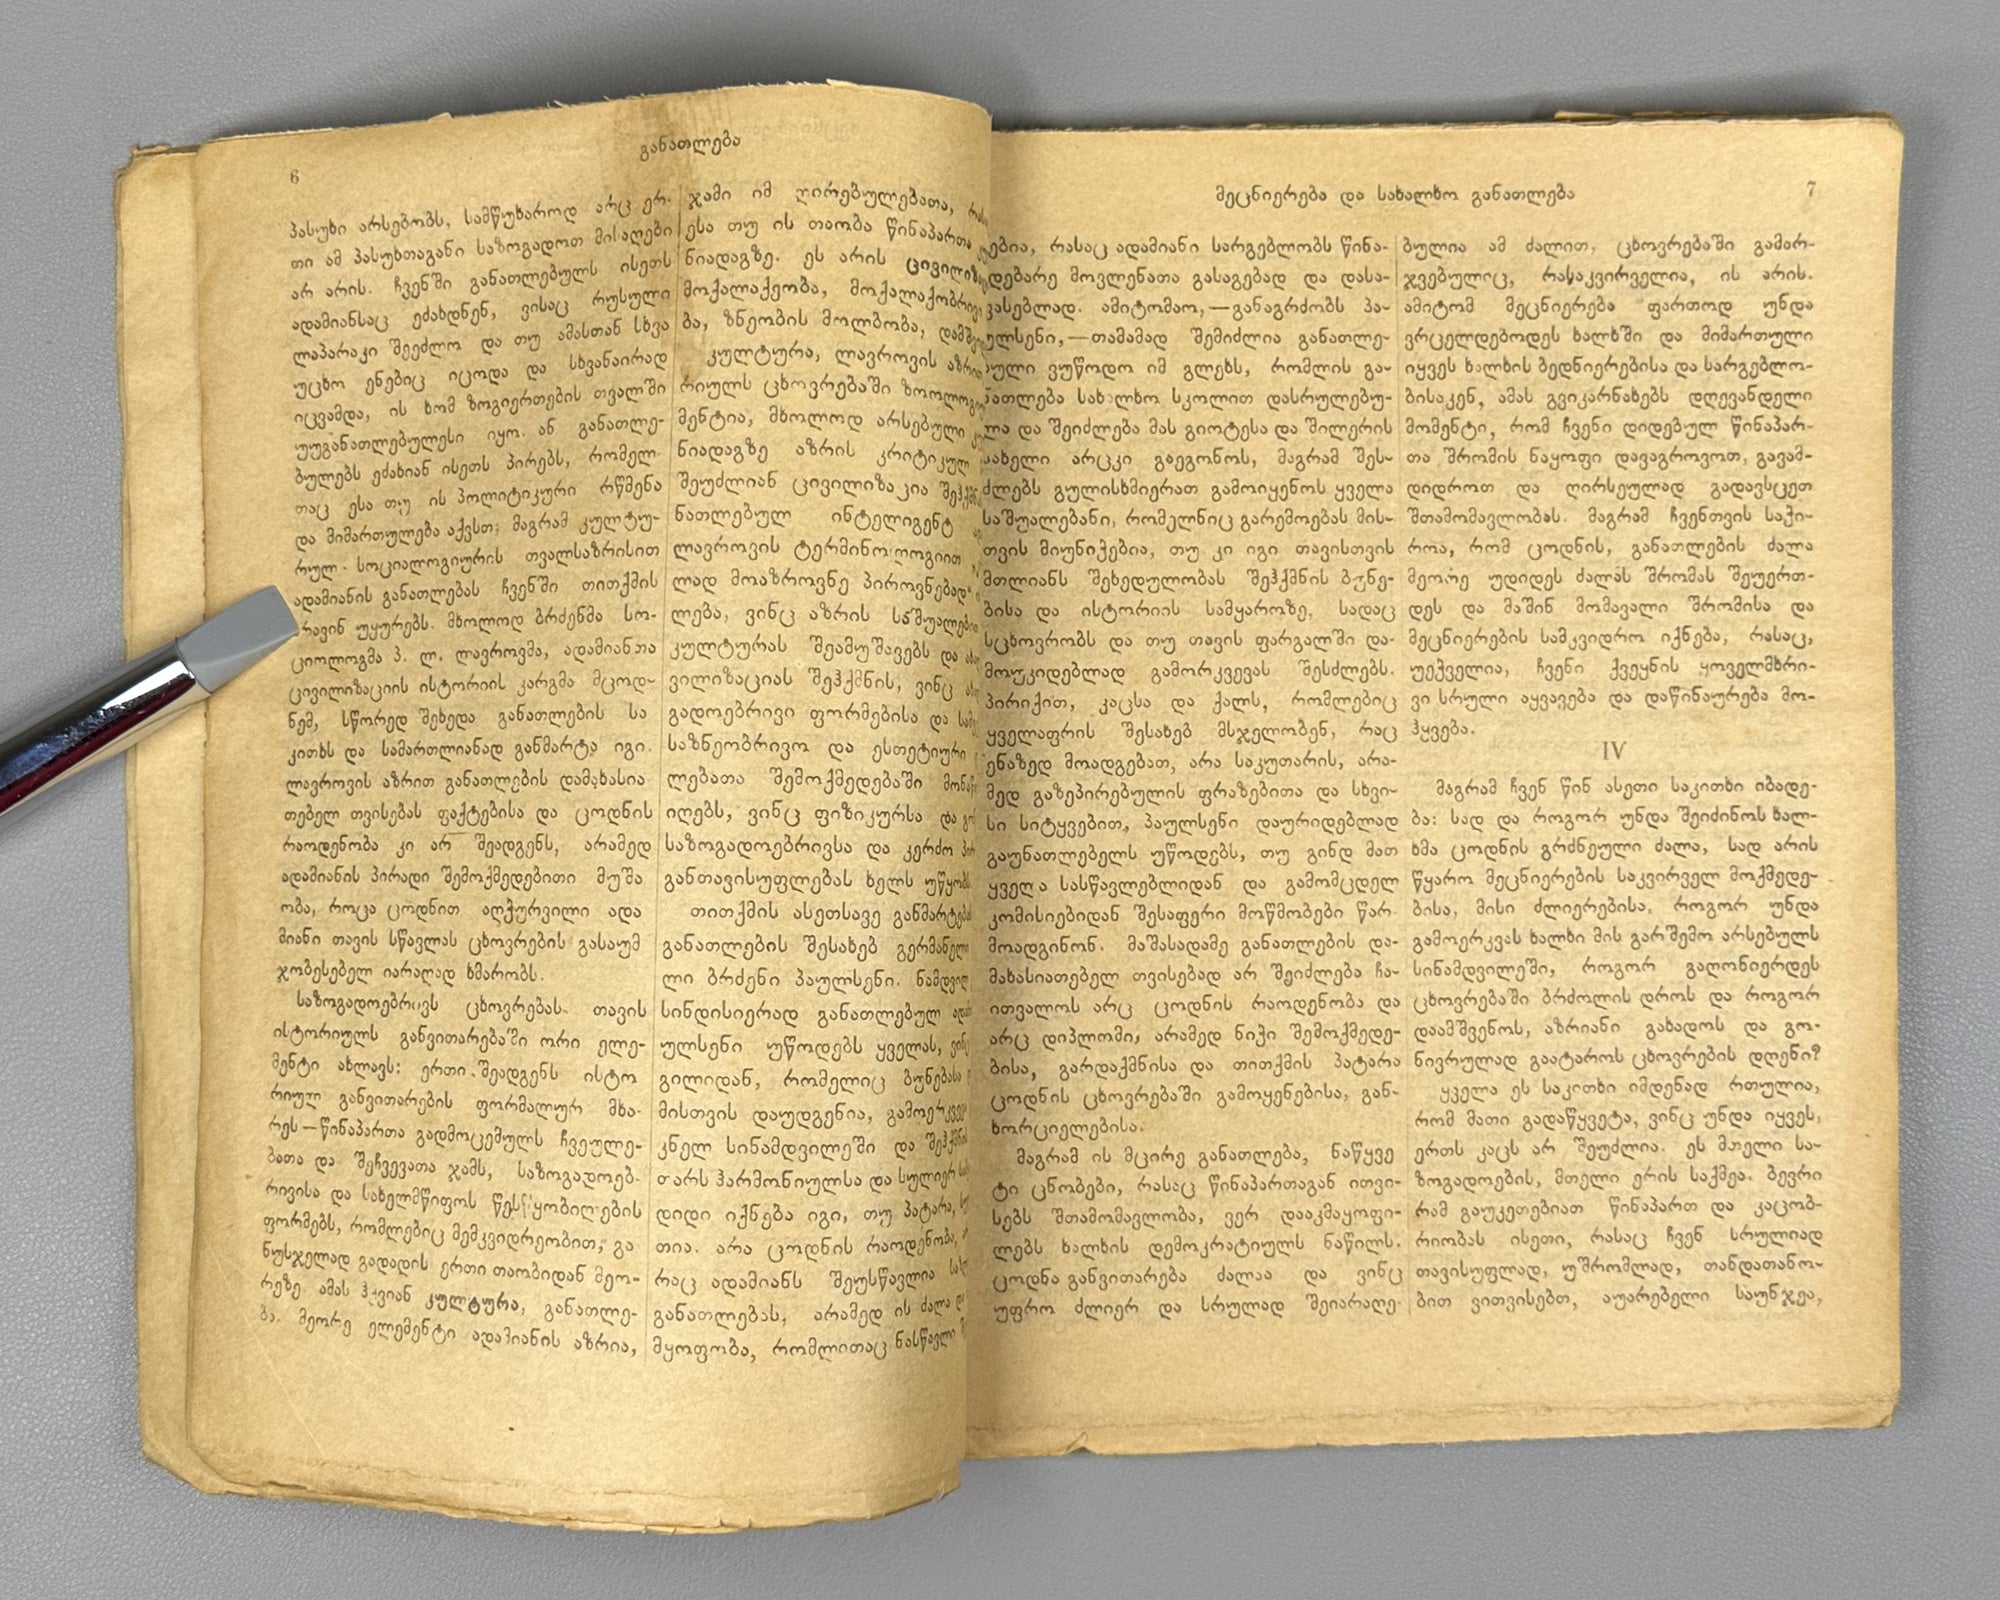 6
განათლება
პასუხი არსებობს, სამწუხაროდ არც ერ-
თი ამ პასუხთაგანი საზოგადოთ მისაღები
არ არის. ჩვენში განათლებულს ისეთს
ადამიანსაც ეძახდნენ, ვისაც რუსული
ლაპარაკი შეეძლო და თუ ამასთან სხვა
უცხო ენებიც იცოდა და სხვანაირად
იცვამდა, ის ხომ ზოგიერთების თვალში
უუგანათლებულესი იყო. ან განათლე-
ბულებს ეძახიან ისეთს პირებს, რომელ-
თაც ესა თუ ის პოლიტიკური რწმენა
და მიმართულება აქვსთ; მაგრამ კულტუ-
რულ - სოციალოგიურის თვალსაზრისით
ადამიანის განათლებას ჩვენში თითქმის
არავინ უყურებს. მხოლოდ ბრძენმა სო-
ციოლოგმა პ. ლ. ლავროვმა, ადამიანთა
ცივილიზაციის ისტორიის კარგმა მცოდ-
ნემ, სწორედ შეხედა განათლების სა
კითხს და სამართლიანად განმარტა იგი.
ლავროვის აზრით განათლების დამახასია
თებელ თვისებას ფაქტებისა და ცოდნის
რაოდენობა კი არ შეადგენს, არამედ
ადამიანის პირადი შემოქმედებითი მუშა
ობა, როცა ცოდნით აღჭურვილი ადა
მიანი თავის სწავლას ცხოვრების გასაუმ
ჯობესებელ იარაღად ხმარობს.
საზოგადოებრივს ცხოვრებას თავის
ისტორიულს განვითარებაში ორი ელე-
მენტი ახლავს: ერთი შეადგენს ისტო
რიულ განვითარების ფორმალურ მხა-
რეს—წინაპართა გადმოცემულს ჩვეულე-
ბათა და შეჩვევათა ჯამს, საზოგადოებ-
რივისა და სახელმწიფოს წესწყობილების
ფორმებს, რომლებიც მემკვიდრეობით, გა
ნუსჯელად გადადის ერთი თაობიდან მეო-
რეზე. ამას ჰქვიან კულტურა, განათლე-
ბა. მეორე ელემენტი ადამიანის აზრია,
ჯამი იმ ღირებულებათა,
ესა თუ ის თაობა წინაპართა
ნიადაგზე. ეს არის
მოქალაქეობა, მოქალაქობრივი
ბა, ზნეობის მოლბობა,
კულტურა, ლავროვის აზრით
რიულს ცხოვრებაში
მენტია, მხოლოდ არსებული
ნიადაგზე აზრის კრიტიკულ
შეუძლიან ცივილიზაცია
ნათლებულ ინტელიგენტ
ლავროვის ტერმინოლოგიით
ლად მოაზროვნე პიროვნებად
ლება, ვინც აზრის საშუალებით
კულტურას შეამუშავებს და
ვილიზაციას შეჰქმნის, ვინც
გადოებრივი ფორმებისა და
საზნეობრივო და ესთეტიური
ლებათა შემოქმედებაში
იღებს, ვინც ფიზიკურსა და
საზოგადოებრივსა და კერძო
განთავისუფლებას ხელს უწყობს
თითქმის ასეთსავე განმარტებას
განათლების შესახებ გერმანელი
ლი ბრძენი პაულსენი. ნამდვილ
სინდისიერად განათლებულ
ულსენი უწოდებს ყველას,
გილიდან, რომელიც ბუნებასა
მისთვის დაუდგენია,
კნელ სინამდვილეში და
არს ჰარმონიულსა და სულიერ
დიდი იქნება იგი, თუ პატარა,
თია. არა ცოდნის რაოდენობა,
რაც ადამიანს შეუსწავლია
განათლებას, არამედ ის ძალა
მყოფობა, რომლითაც ნასწავლი
მეცნიერება და სახალხო განათლება
7
ებია, რასაც ადამიანი სარგებლობს წინა-
დებარე მოვლენათა გასაგებად და დასა-
ვასებლად. ამიტომაო,—განაგრძობს პა-
ულსენი,—თამამად შემიძლია განათლე-
ბული ვუწოდო იმ გლეხს, რომლის გა-
ნათლება სახალხო სკოლით დასრულებუ-
ლა და შეიძლება მას გიოტესა და შილერის
სახელი არცკი გაეგონოს, მაგრამ შეს-
ძლებს გულისხმიერათ გამოიყენოს ყველა
საშუალებანი, რომელნიც გარემოებას მის-
თვის მიუნიჭებია, თუ კი იგი თავისთვის
მთლიანს შეხედულობას შეჰქმნის ბუნე-
ბისა და ისტორიის სამყაროზე, სადაც
სცხოვრობს და თუ თავის ფარგალში და-
მოუკიდებლად გამორკვევას შესძლებს.
პირიქით, კაცსა და ქალს, რომლებიც
ყველაფრის შესახებ მსჯელობენ, რაც
ენაზედ მოადგებათ, არა საკუთარის, არა-
მედ გაზეპირებულის ფრაზებითა და სხვი-
სი სიტყვებით, პაულსენი დაურიდებლად
გაუნათლებელს უწოდებს, თუ გინდ მათ
ყველა სასწავლებლიდან და გამომცდელ
კომისიებიდან შესაფერი მოწმობები წარ-
მოადგინონ. მაშასადამე განათლების და-
მახასიათებელ თვისებად არ შეიძლება ჩა-
ითვალოს არც ცოდნის რაოდენობა და
არც დიპლომი, არამედ ნიჭი შემოქმედე-
ბისა, გარდაქმნისა და თითქმის პატარა
ცოდნის ცხოვრებაში გამოყენებისა, გან-
ხორციელებისა.
მაგრამ ის მცირე განათლება, ნაწყვე
ტი ცნობები, რასაც წინაპართაგან ითვი-
სებს შთამომავლობა, ვერ დააკმაყოფი-
ლებს ხალხის დემოკრატიულს ნაწილს.
ცოდნა განვითარება ძალაა და ვინც
უფრო ძლიერ და სრულად შეიარაღე-
ბულია ამ ძალით, ცხოვრებაში გამარ-
ჯვებულიც, რასაკვირველია, ის არის.
ამიტომ მეცნიერება ფართოდ უნდა
ვრცელდებოდეს ხალხში და მიმართული
იყვეს ხალხის ბედნიერებისა და სარგებლო-
ბისაკენ, ამას გვიკარნახებს დღევანდელი
მომენტი, რომ ჩვენი დიდებულ წინაპარ-
თა შრომის ნაყოფი დავაგროვოთ, გავამ-
დიდროთ და ღირსეულად გადავსცეთ
შთამომავლობას. მაგრამ ჩვენთვის საჭი-
როა, რომ ცოდნის, განათლების ძალა
მეორე უდიდეს ძალას შრომას შეუერთ-
დეს და მაშინ მომავალი შრომისა და
მეცნიერების სამკვიდრო იქნება, რასაც,
უეჭველია, ჩვენი ქვეყნის ყოველმხრი-
ვი სრული აყვავება და დაწინაურება მო-
ჰყვება.
IV
მაგრამ ჩვენ წინ ასეთი საკითხი იბადე-
ბა: სად და როგორ უნდა შეიძინოს ხალ-
ხმა ცოდნის გრძნეული ძალა, სად არის
წყარო მეცნიერების საკვირველ მოქმედე-
ბისა, მისი ძლიერებისა, როგორ უნდა
გამოერკვას ხალხი მის გარშემო არსებულს
სინამდვილეში, როგორ გაღონიერდეს
ცხოვრებაში ბრძოლის დროს და როგორ
დაამშვენოს, აზრიანი გახადოს და გო-
ნივრულად გაატაროს ცხოვრების დღენი?
ყველა ეს საკითხი იმდენად რთულია,
რომ მათი გადაწყვეტა, ვინც უნდა იყვეს,
ერთს კაცს არ შეუძლია. ეს მთელი სა-
ზოგადოების, მთელი ერის საქმეა. ბევრი
რამ გაუკეთებიათ წინაპართ და კაცობ-
რიობას ისეთი, რასაც ჩვენ სრულიად
თავისუფლად, უშრომლად, თანდათანო-
ბით ვითვისებთ, აუარებელი საუნჯეა,